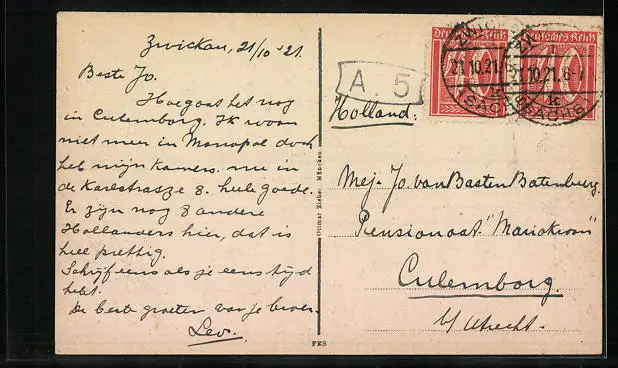 Zwickau, 21/10 '21.
Beste Jo.
Hoe gaat het nog
in Culemborg. Ik woon
niet meer in Monopol doch
heb mijn kamers. nu in
de Karlstrasze 8. heele goede.
Er zijn nog 8 andere
Hollanders hier, dat is
heel prettig.
Schrijf eens als je eens tijd
hebt.
De beste groeten van je broer
Leo.
Ottmar Zieher, München
FES
A. 5
Deutsches Reich
ZWICKAU
21.10.21.
k
(SACHS)
21.10.21.6-7
k
(SACHS)
Holland.
Mej. Jo. van Basten Batenburg.
Pensionaat "Mariakroon"
Culemborg.
b/ Utrecht.